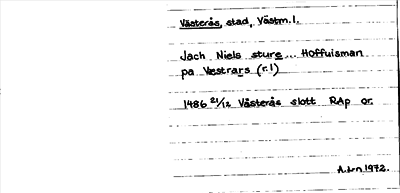 Västerås, stad, Västm. l.
Jach Niels sture ... Hoffuisman
pa Væstrars (r. 1)
1486 21/12 Västerås slott RAp or.
A.L-n 1972.